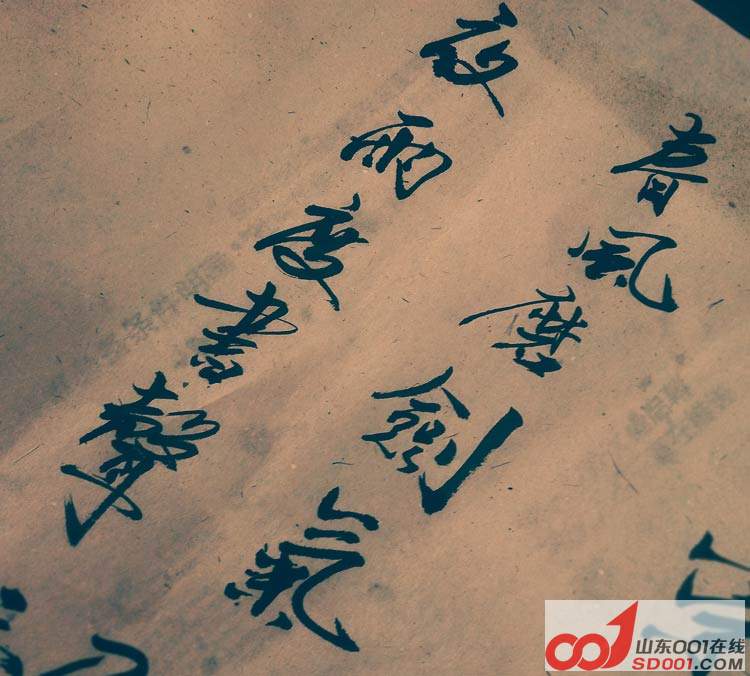 春風磨劍氣
夜雨度書聲
山东001在线
SD001.COM